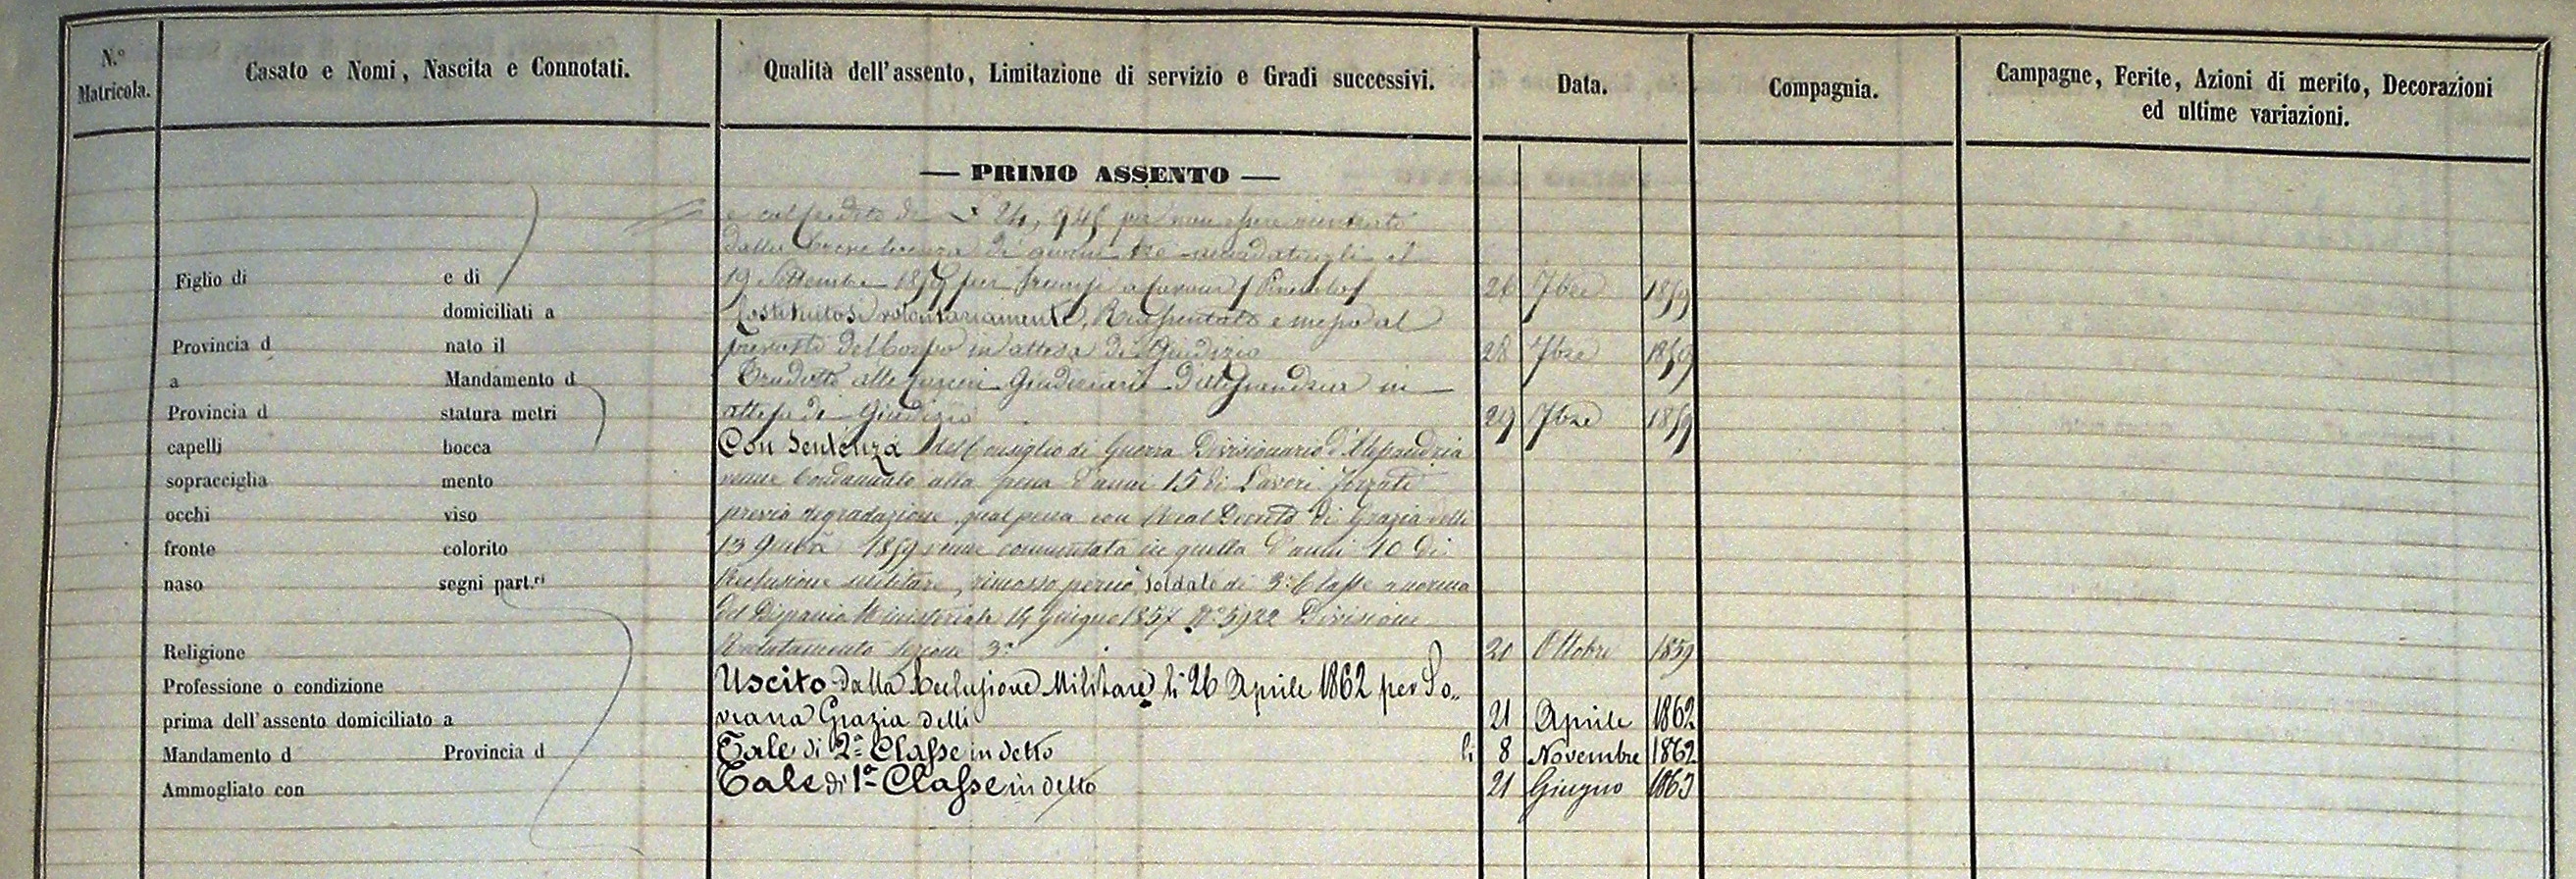 N.º Matricola.
Casato e Nomi, Nascita e Connotati.
Qualità dell'assento, Limitazione di servizio e Gradi successivi.
Data.
Compagnia.
Campagne, Ferite, Azioni di merito, Decorazioni
ed ultime variazioni.
— PRIMO ASSENTO —
Figlio di e di
domiciliati a
Provincia d nato il
a Mandamento d
Provincia d statura metri
capelli bocca
sopracciglia mento
occhi viso
fronte colorito
naso segni part.ri
Religione
Professione o condizione
prima dell'assento domiciliato a
Mandamento d Provincia d
Ammogliato con
di 24, 945 per non essere rientrato
dalla breve licenza di giorni tre accordatagli il
19 Settembre 1859 per a 26 7bre 1859
Costituitosi volontariamente, e messo al
del Corpo in attesa di Giudizio 28 7bre 1859
Tradotto alle Carceri Giudiziarie in
attesa di Giudizio 29 7bre 1859
Con Sentenza del Consiglio di Guerra Divisionario d'Alessandria
venne Condannato alla pena d'anni 15 di Lavori forzati
previa degradazione, qual pena con Real Decreto di Grazia delli
13 1859 venne commutata in quella d'anni 10 di
Reclusione militare, rimosso perciò, Soldato di 3.ª Classe a norma
del Dispaccio Ministeriale 14 Giugno 1857 Nº 5922 Divisione
Reclutamento Sezione 3.ª 20 Ottobre 1859
Uscito dalla Reclusione Militare li 26 Aprile 1862 per So„
vrana Grazia delli 21 Aprile 1862
Tale di 2.ª Classe in detto li 8 Novembre 1862
Tale di 1.ª Classe in detto 21 Giugno 1863